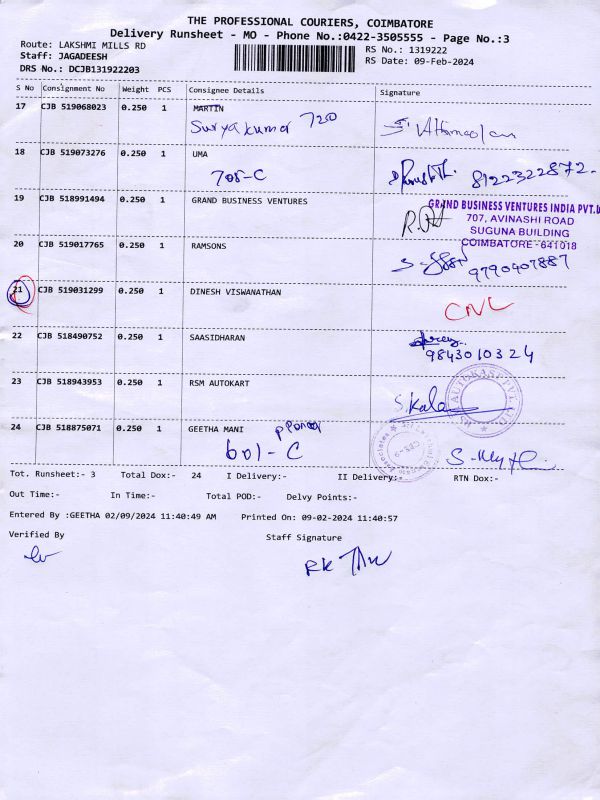 THE PROFESSIONAL COURIERS, COIMBATORE
Delivery Runsheet - MO - Phone No.:0422-3505555 - Page No.:3
Route: LAKSHMI MILLS RD
RS No.: 1319222
Staff: JAGADEESH
RS Date: 09-Feb-2024
DRS No.: DCJB131922203
S No Consignment No Weight PCS Consignee Details Signature
17 CJB 519068023 0.250 1 MARTIN
Suryakumar 720
18 CJB 519073276 0.250 1 UMA
708-C 8122322872.
19 CJB 518991494 0.250 1 GRAND BUSINESS VENTURES
GRAND BUSINESS VENTURES INDIA PVT.L
707, AVINASHI ROAD
SUGUNA BUILDING
COIMBATORE - 641018
20 CJB 519017765 0.250 1 RAMSONS
9790907887
21 CJB 519031299 0.250 1 DINESH VISWANATHAN
CNL
22 CJB 518490752 0.250 1 SAASIDHARAN
9843010324
23 CJB 518943953 0.250 1 RSM AUTOKART
S.Kala
24 CJB 518875071 0.250 1 GEETHA MANI
601-C
Tot. Runsheet:- 3 Total Dox:- 24 I Delivery:- II Delivery:- RTN Dox:-
Out Time:- In Time:- Total POD:- Delvy Points:-
Entered By :GEETHA 02/09/2024 11:40:49 AM Printed On: 09-02-2024 11:40:57
Verified By Staff Signature